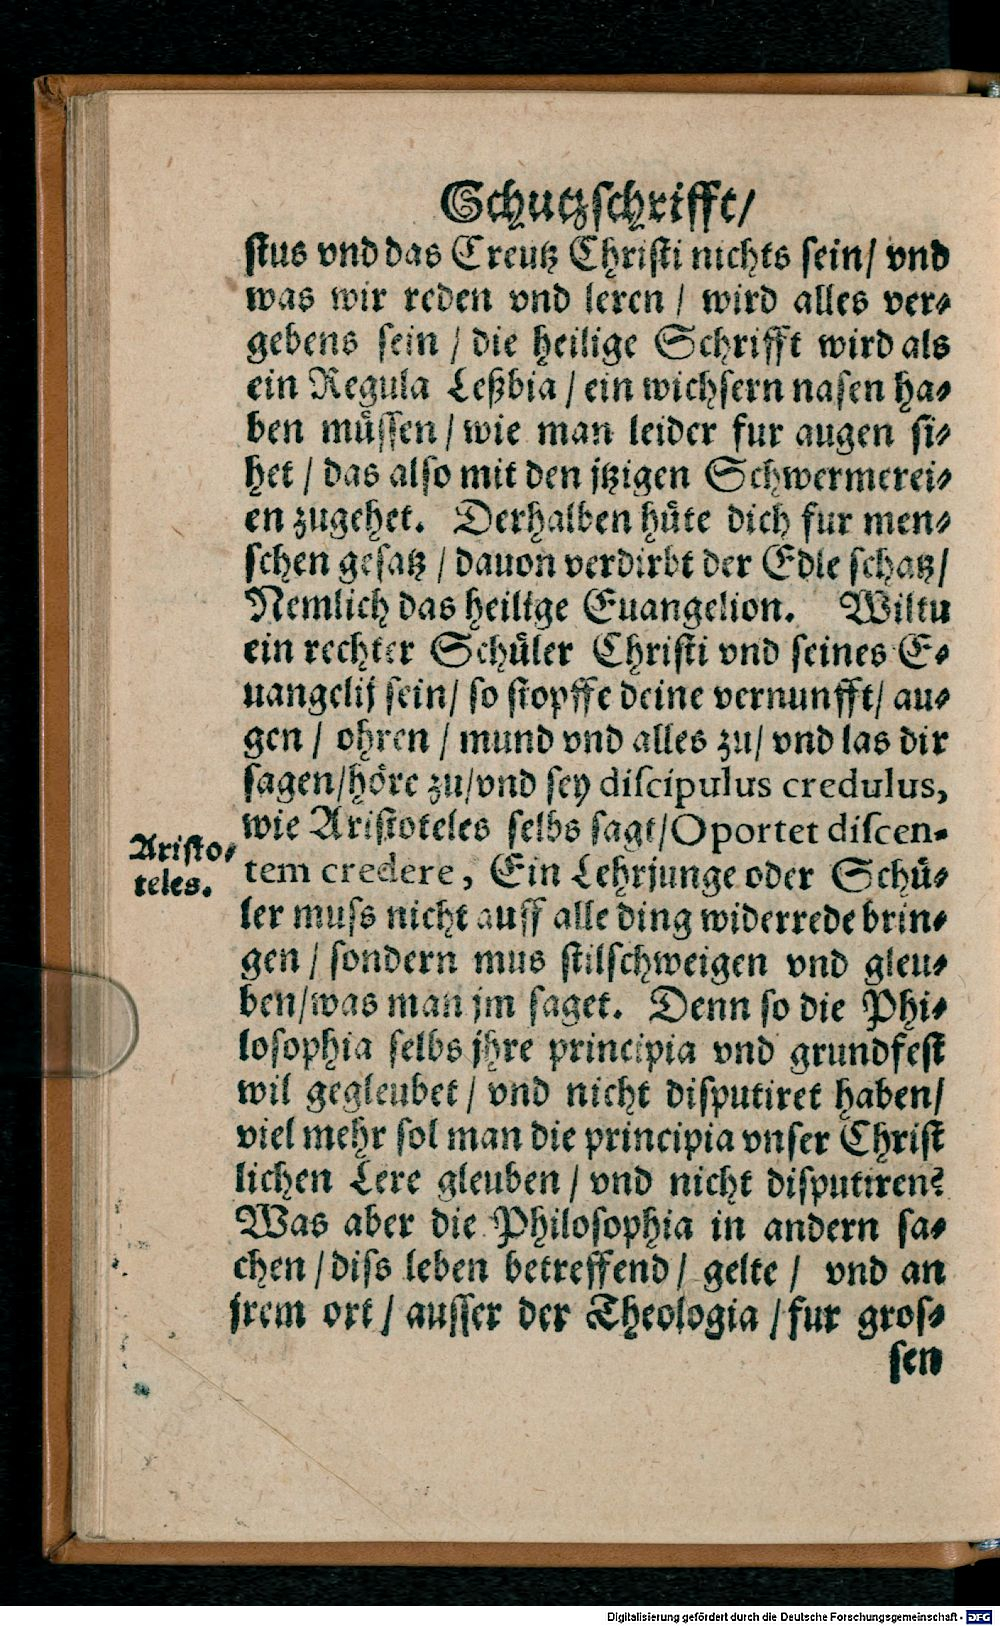 Schutzschrifft/
stus vnd das Creutz Christi nichts sein/ vnd
was wir reden vnd leren / wird alles ver-
gebens sein / die heilige Schrifft wird als
ein Regula Leßbia / ein wichsern nasen ha-
ben müssen / wie man leider fur augen si-
het / das also mit den jtzigen Schwermerei-
en zugehet. Derhalben hüte dich fur men-
schen gesatz / dauon verdirbt der Edle schatz/
Nemlich das heilige Euangelion. Wiltu
ein rechter Schüler Christi vnd seines E-
uangelij sein/ so stopffe deine vernunfft/ au-
gen / ohren / mund vnd alles zu/ vnd las dir
sagen/höre zu/vnd sey discipulus credulus,
wie Aristoteles selbs sagt/Oportet discen-
Aristo-
teles.
tem credere, Ein Lehrjunge oder Schü-
ler muss nicht auff alle ding widerrede brin-
gen / sondern mus stilschweigen vnd gleu-
ben/was man jm saget. Denn so die Phi-
losophia selbs jhre principia vnd grundfest
wil gegleubet / vnd nicht disputiret haben/
viel mehr sol man die principia vnser Christ
lichen Lere gleuben / vnd nicht disputiren?
Was aber die Philosophia in andern sa-
chen / diss leben betreffend / gelte / vnd an
jrem ort / ausser der Theologia / fur gros-
sen
Digitalisierung gefördert durch die Deutsche Forschungsgemeinschaft - DFG